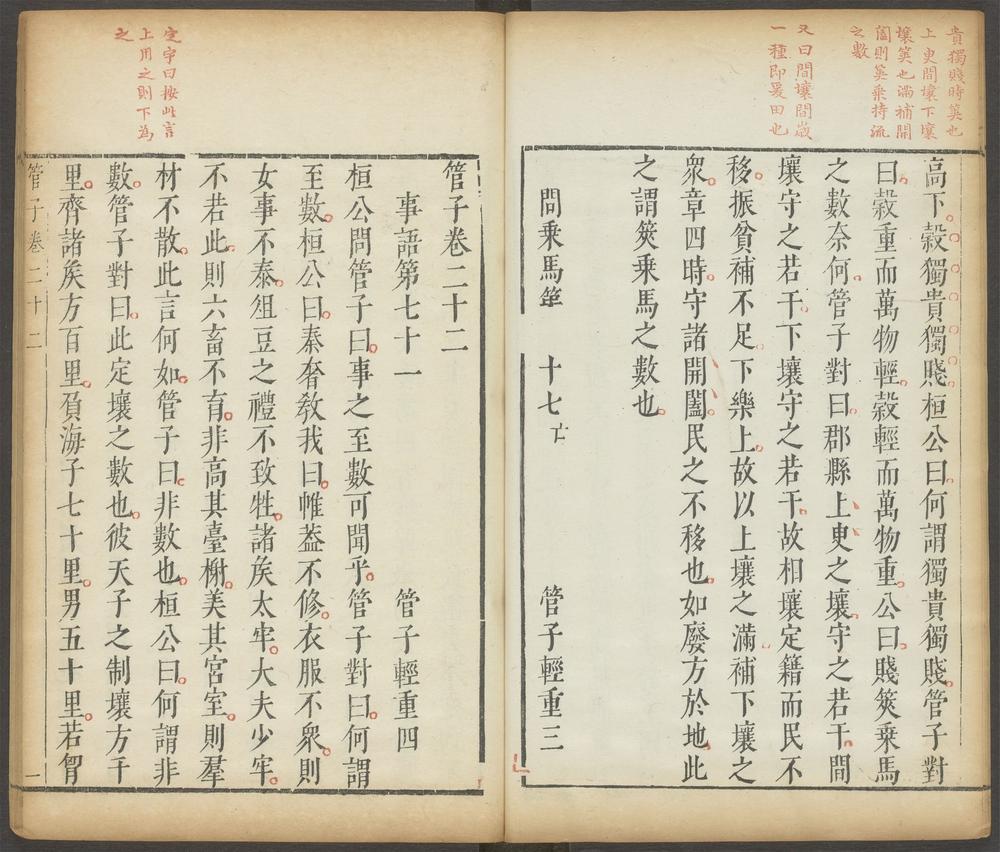 貴獨賤時筴也
上臾間壤下壤
壤筴也滿補開
闔則筴乗持流
之數
又曰間壤間歲
一種即爰田也
高下穀獨貴獨賤桓公曰何謂獨貴獨賤管子對
曰穀重而萬物輕穀輕而萬物重公曰賤筴乗馬
之數奈何管子對曰郡縣上臾之壤守之若干間
壤守之若干下壤守之若干故相壤定籍而民不
移振貧補不足下樂上故以上壤之滿補下壤之
衆章四時守諸開闔民之不移也如廢方於地此
之謂筴乗馬之數也
問乗馬第 十七亡 管子輕重三
定宇曰按此言
上用之則下為
之
管子卷二十二
事語第七十一 管子輕重四
桓公問管子曰事之至數可聞乎管子對曰何謂
至數桓公曰秦奢敎我曰帷葢不修衣服不衆則
女事不泰俎豆之禮不致牲諸矦太牢大夫少牢
不若此則六畜不育非高其臺榭美其宮室則羣
材不散此言何如管子曰非數也桓公曰何謂非
數管子對曰此定壤之數也彼天子之制壤方千
里齊諸矦方百里負海子七十里男五十里若胷
管子卷二十二 一